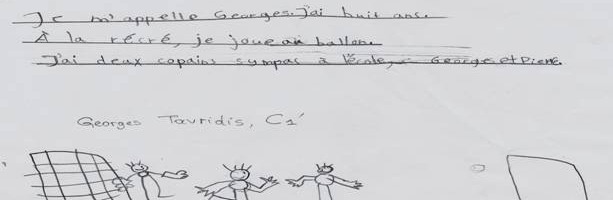 Je m'appelle Georges. J'ai huit ans.
À la récré, je joue au ballon.
J'ai deux copains sympas à l'école, George et Pierre.
Georges Tavridis, C1'